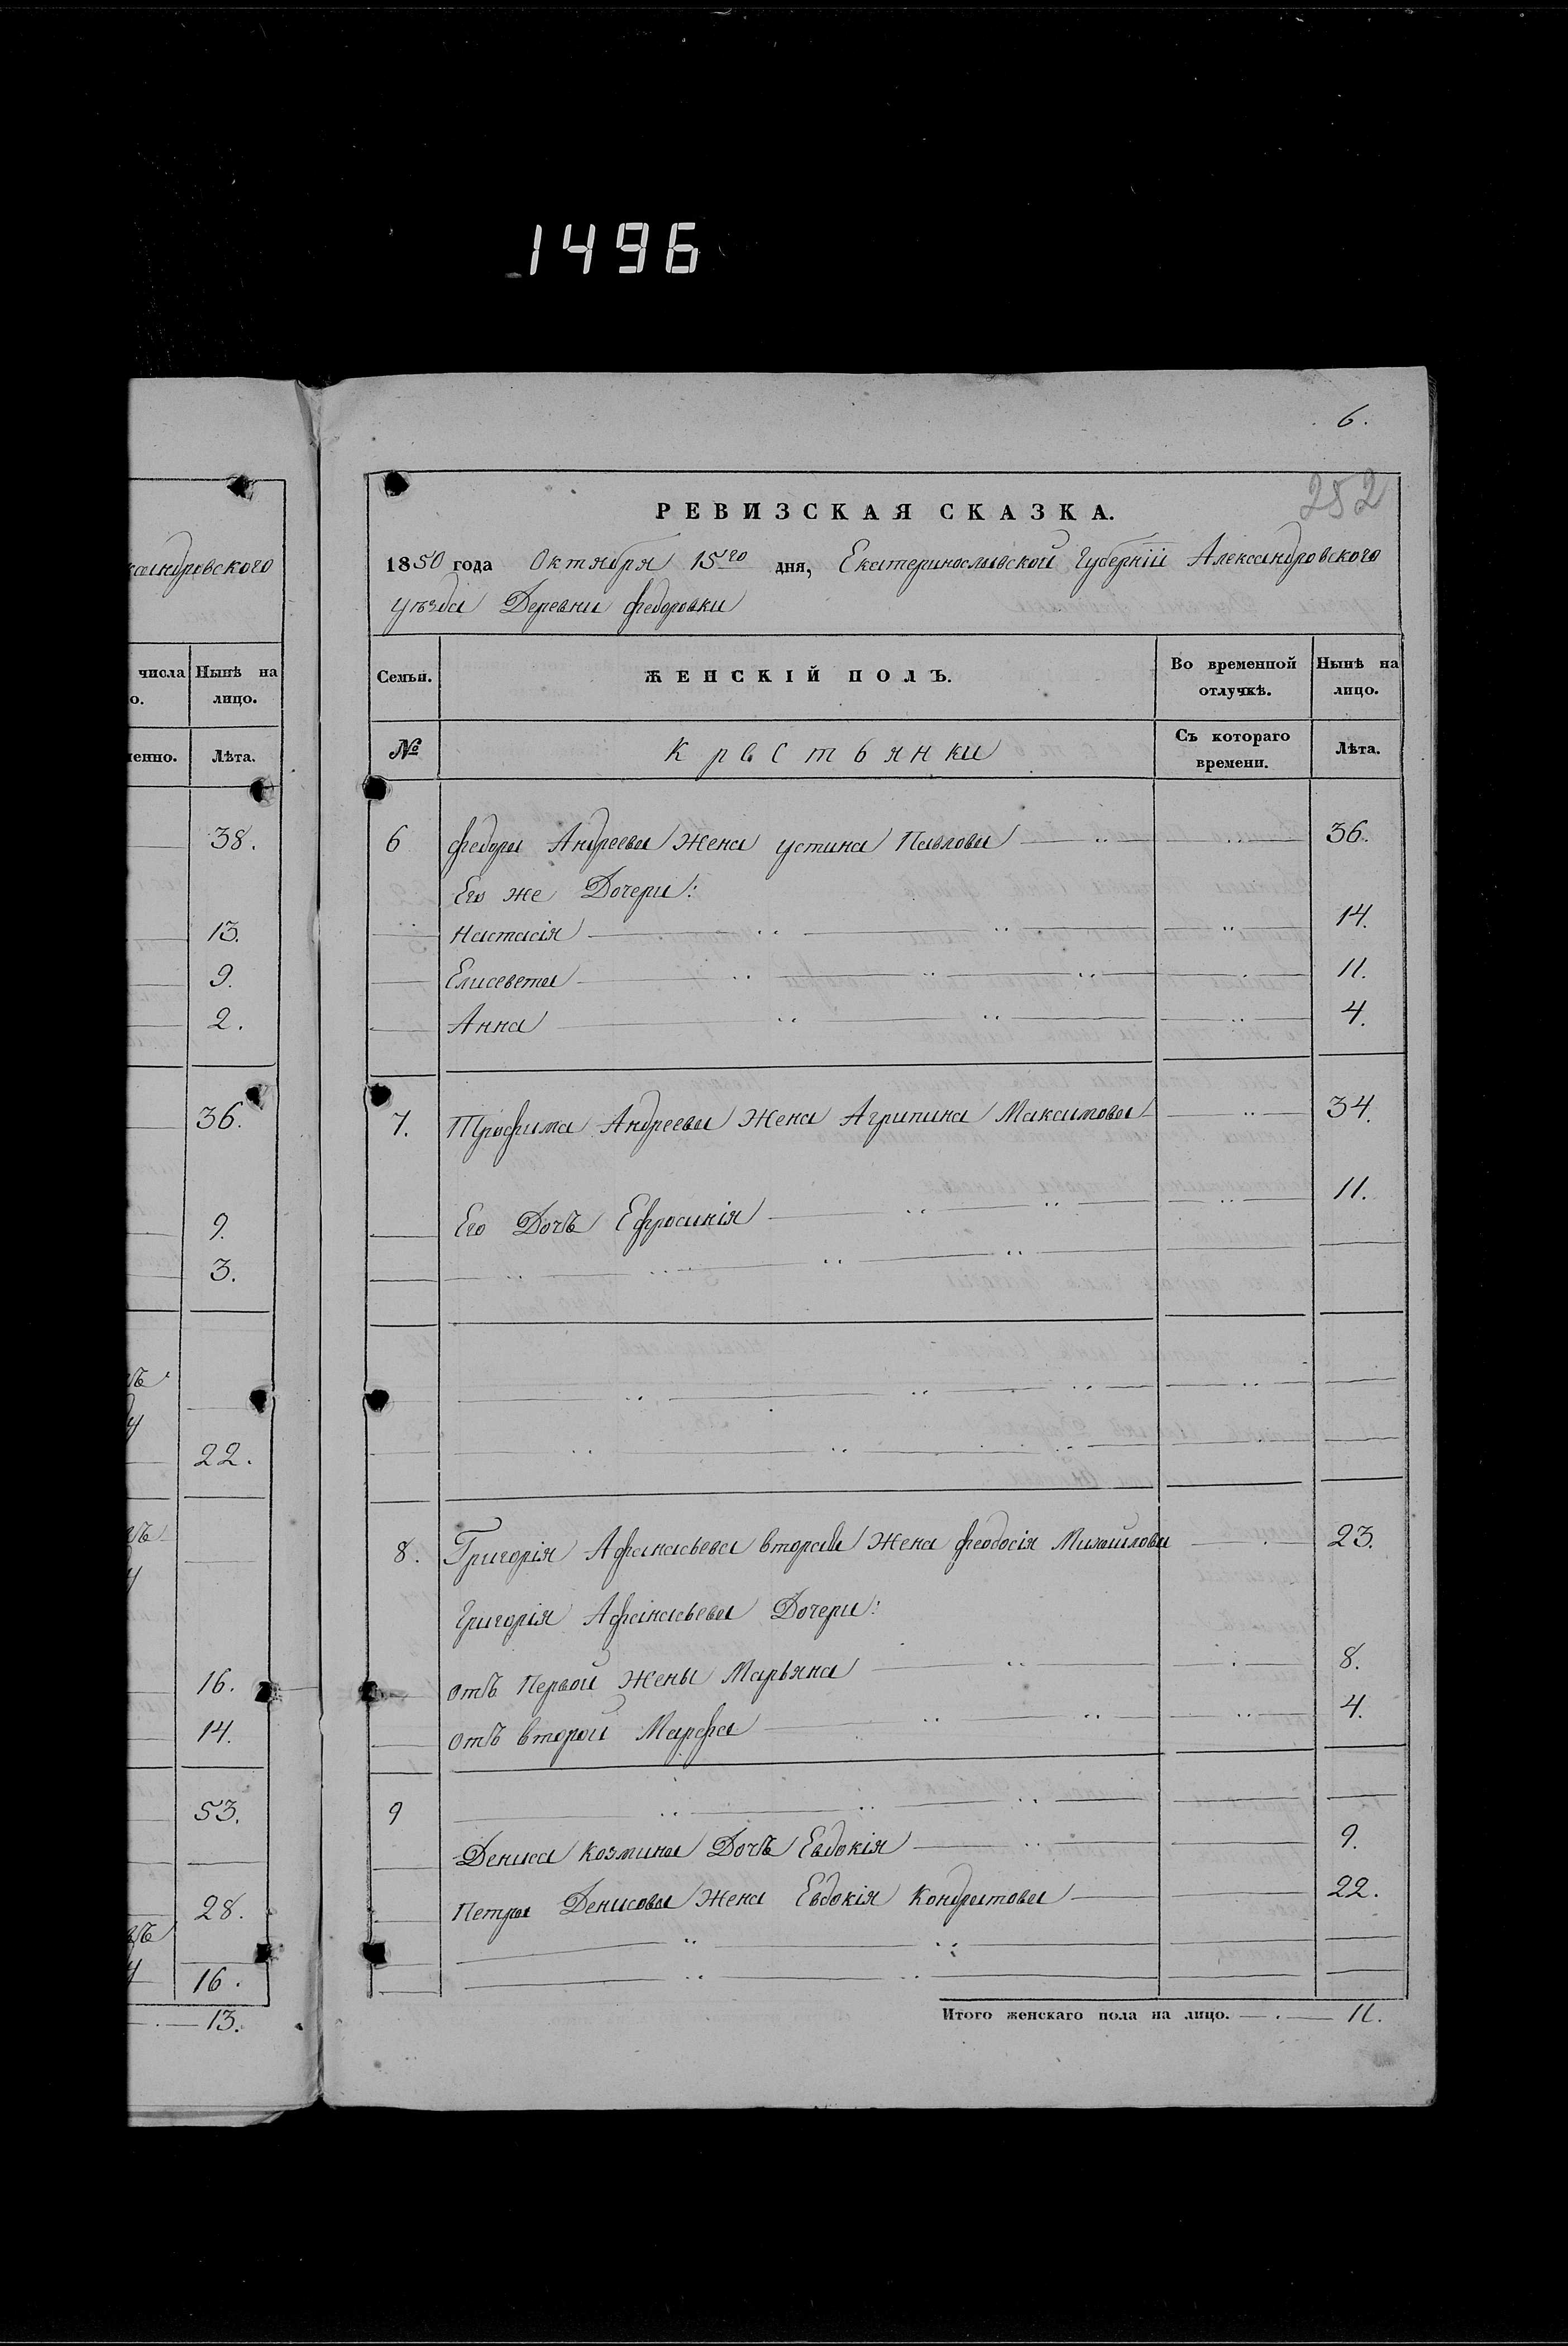 1496
6.
252
РЕВИЗСКАЯ СКАЗКА.
1850 года Октября 15го дня, Екатеринославской Губернiи Александровского
уѣзда Деревни Федоровки
числа Нынѣ на
о. лицо.
Лѣта.
38.
13.
9.
2.
36.
9.
3.
22.
16.
14.
53.
28.
16.
13.
Семьи. ЖЕНСКIЙ ПОЛЪ. Во временной отлучкѣ. Нынѣ на лицо.
№ Крестьянки Съ котораго времени. Лѣта.
6 Федора Андреева Жена Устина Павлова 36.
Его же Дочери:
Настасiя 14.
Елисевета 11.
Анна 4.
7. Трофима Андреева Жена Агрипина Максимова 34.
Его Дочь Ефросинiя 11.
8. Григорiя Афанасьева вторая Жена Феодосiя Михайлова 23.
Григорiя Афанасьева Дочери:
отъ Первой Жены Марьяна 8.
отъ второй Марфа 4.
9
Дениса Козмина Дочь Евдокiя 9.
Петра Денисова Жена Евдокiя Кондратова 22.
Итого женскаго пола на лицо. 11.